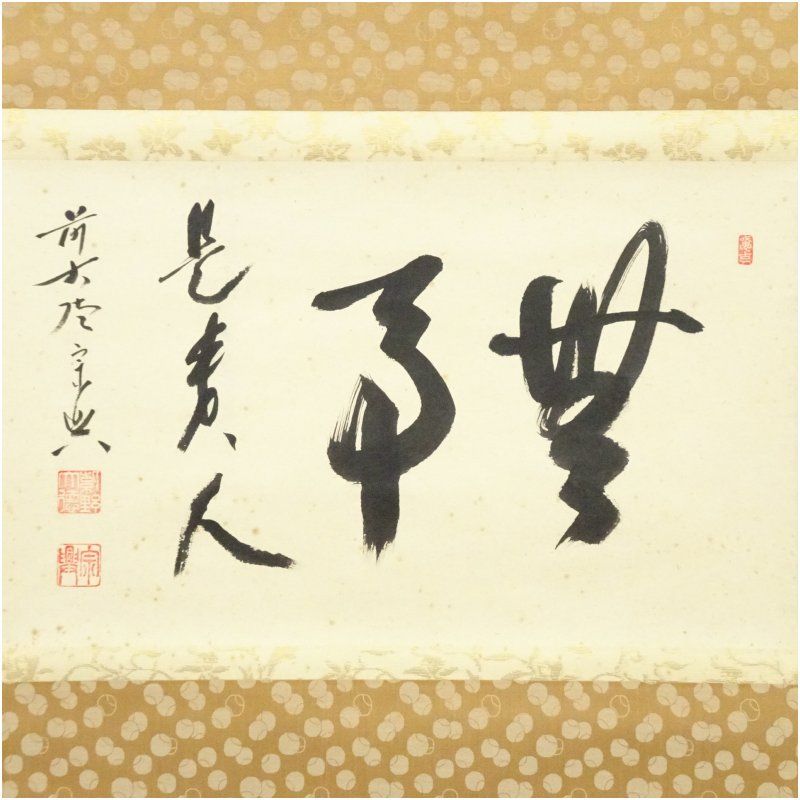 無事
是貴人
前大徳宗興